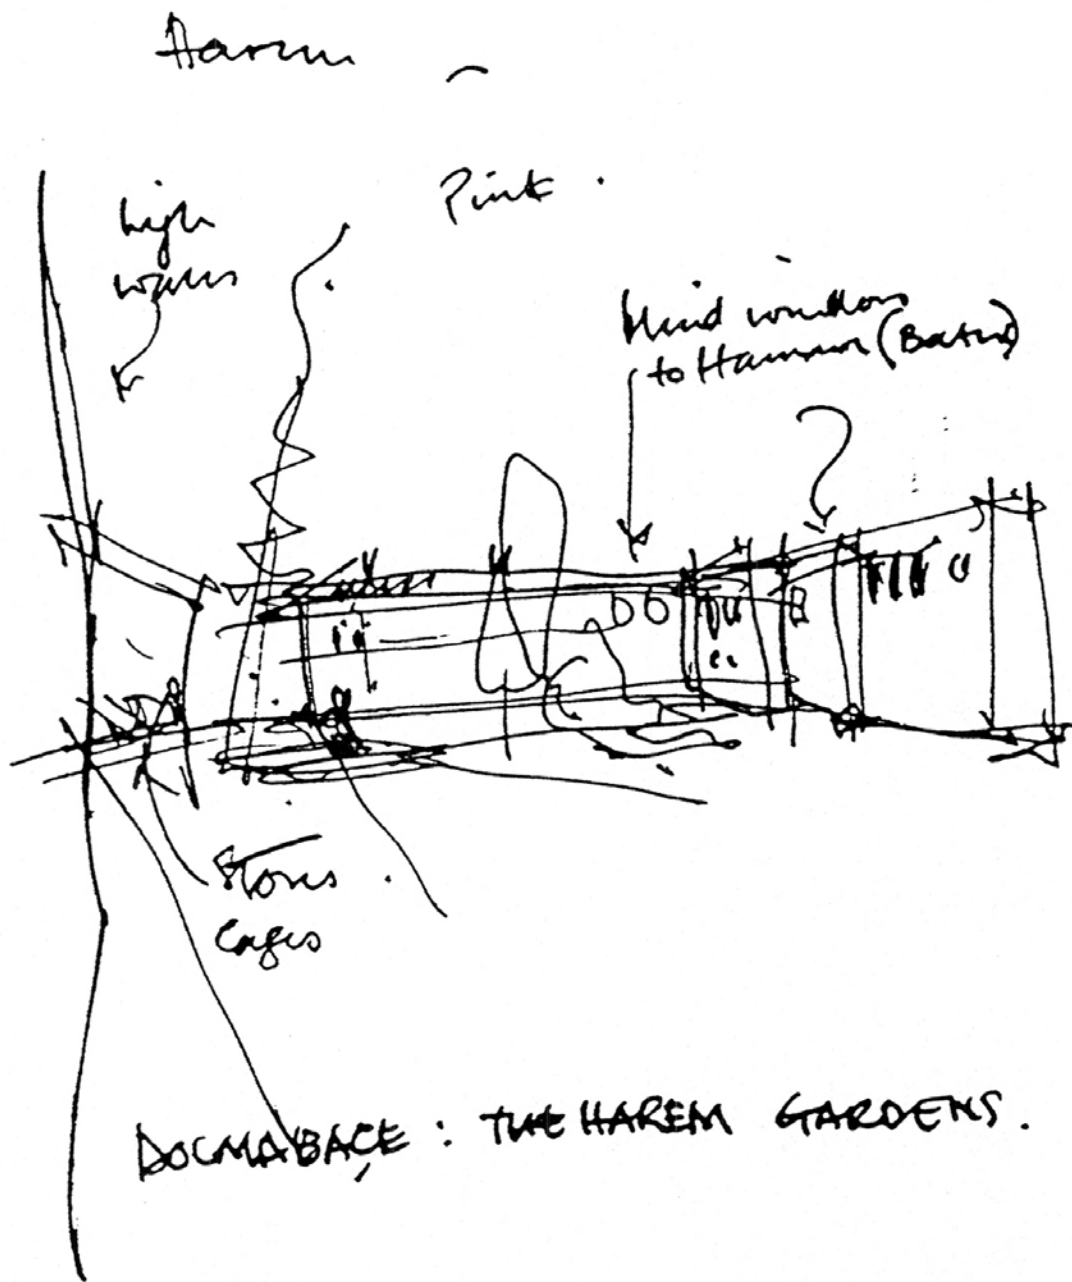 Harem
Pink.
high
walls
blind windows
to Hammam (Baths)
?
Stores
Cages
DOLMABAÇE: THE HAREM GARDENS.